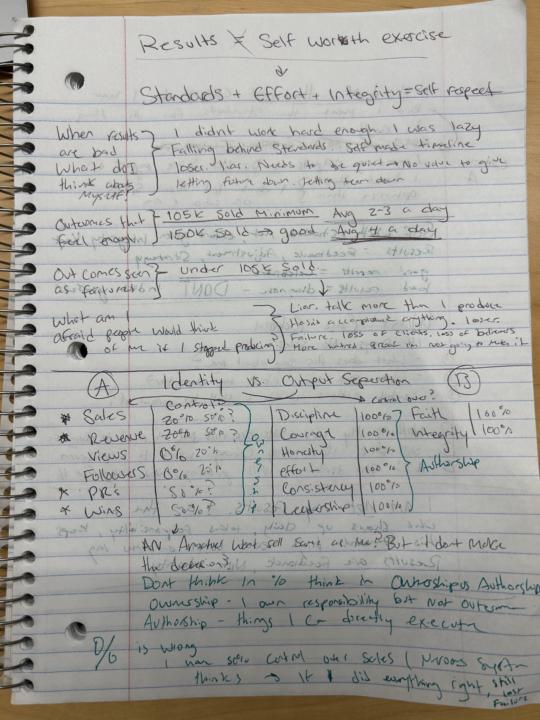 Results ≠ Self worth exercise
↓
Standards + Effort + Integrity = Self respect
When results are bad What do I think about Myself?
I didnt work hard enough. I was lazy
Falling behind standards. Self made timeline
loser. liar. Needs to be quiet → No value to give
letting future down. letting team down
Outcomes that feel enough
105k Sold Minimum Avg 2-3 a day
150k Sold → good. Avg 4 a day
Outcomes seen as failure
under 105k sold
What am I afraid people would think of me if I stopped producing?
Liar. talk more than I produce
Hasnt accomplished anything. loser.
Failure, loss of clients, loss of
More hatred. Gonna im not going to make it
A Identity vs. Output Separation B
Control? control over?
* Sales 20% 50%? Discipline 100% Faith 100%
* Revenue 20% 50%? Courage 100% Integrity 100%
Views 0% 20% Honesty 100%
Followers 0% 20% effort 100% Authorship
* PR's 50%? Consistency 100%
* Wins 50%? Leadership 100%
Ownership
AN Amateur wont sell same as me? But it dont make
the decision?
Dont think in % think in Ownership vs Authorship
Ownership - I own responsibility but not outcome
Authorship - things I can directly execute
0% is wrong
I have some control over Sales Nervous System
thinks → If I did everything right, still
Failure